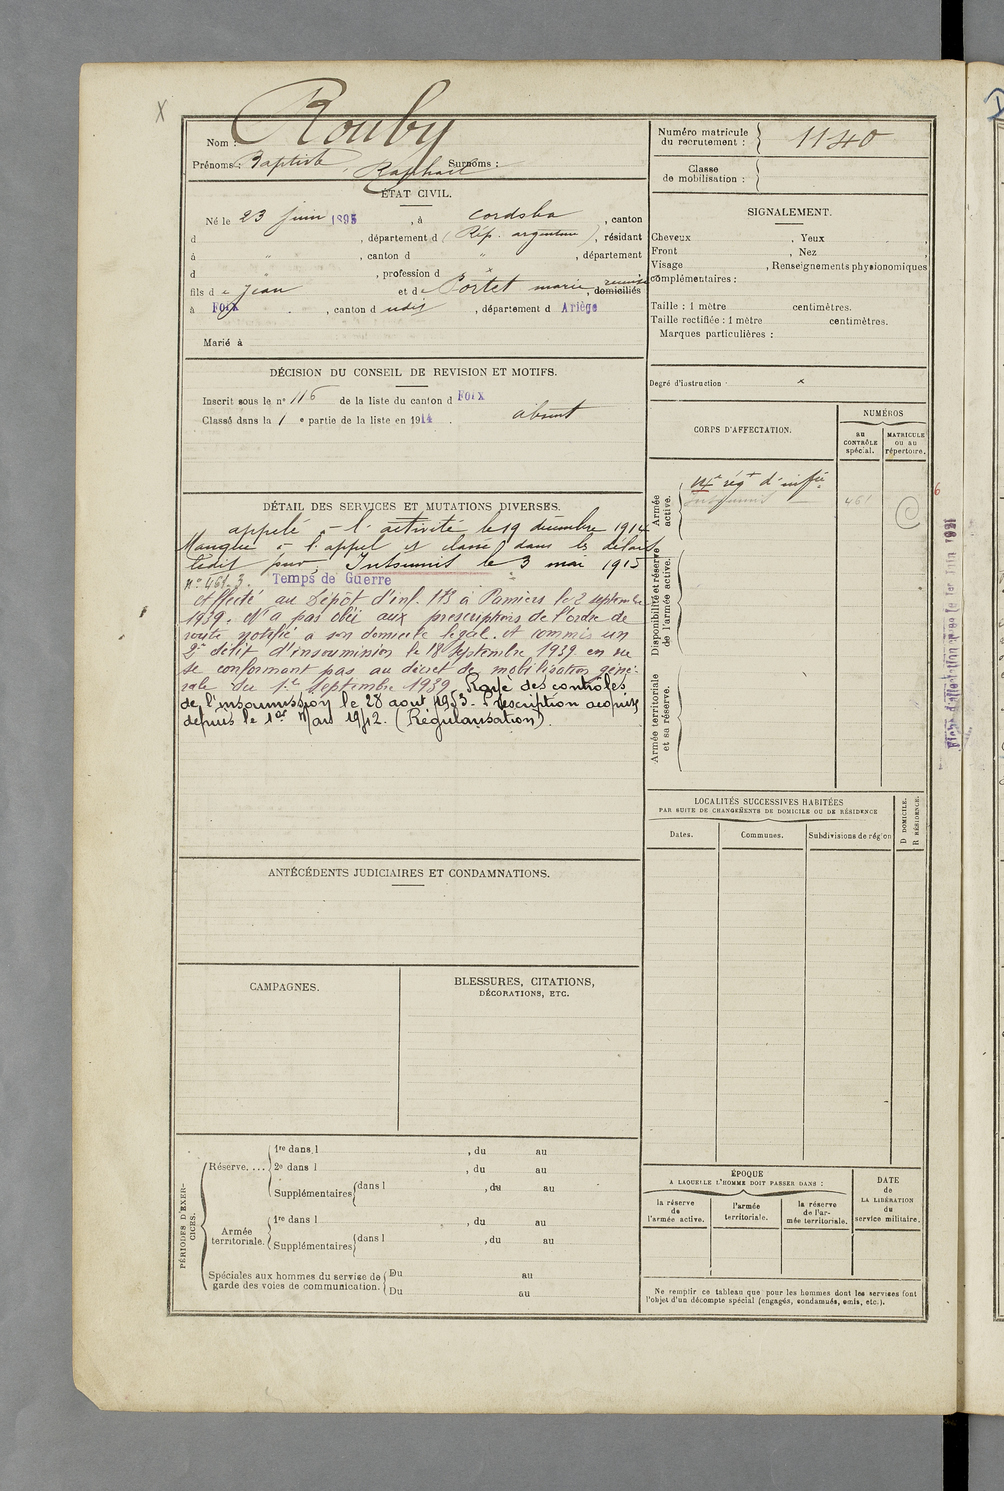 X
Nom : Rouby
Prénoms : Baptiste Raphael Surnoms :
Numéro matricule du recrutement : 1140
Classe de mobilisation :
ÉTAT CIVIL.
Né le 23 juin 1895, à Cordoba, canton
d , département d (Rép. argentine), résidant
à " , canton d " , département
d " , profession d "
fils de Jean et de Portet marie domiciliés
à Foix , canton d udis , département d Ariège
Marié à
SIGNALEMENT.
Cheveux , Yeux ,
Front , Nez ,
Visage , Renseignements physionomiques
complémentaires :
Taille : 1 mètre centimètres.
Taille rectifiée : 1 mètre centimètres.
Marques particulières :
Degré d'instruction x
DÉCISION DU CONSEIL DE REVISION ET MOTIFS.
Inscrit sous le n° 116 de la liste du canton d Foix
Classé dans la 1 e partie de la liste en 1914 . absent
CORPS D'AFFECTATION.
NUMÉROS
au CONTRÔLE spécial.
MATRICULE OU AU répertoire.
Armée active.
régt d'infie
Insoumis 461
6
Disponibilité et réserve de l'armée active.
Armée territoriale et sa réserve.
DÉTAIL DES SERVICES ET MUTATIONS DIVERSES.
appelé à l'activité le 19 décembre 1914
Manque à l'appel et classé dans les délais
Ledit jour. Insoumis le 3 mai 1915
n° 461-3. Temps de Guerre
Affecté au Dépôt d'inf. 173 à Pamiers le 2 septembre
1939. N'a pas obéi aux prescriptions de l'ordre de
route notifié a son domicile légal. A commis un
2e délit d'insoumission le 18 septembre 1939 en ne
se conformant pas au décret de mobilisation géné-
rale du 1er Septembre 1939. Rayé des contrôles
de l'insoumission le 28 aout 1953. Prescription acquise
depuis le 1er Mars 1942. (Régularisation).
LOCALITÉS SUCCESSIVES HABITÉES
PAR SUITE DE CHANGEMENTS DE DOMICILE OU DE RÉSIDENCE
Dates.
Communes.
Subdivisions de région
D DOMICILE.
R RÉSIDENCE.
ANTÉCÉDENTS JUDICIAIRES ET CONDAMNATIONS.
CAMPAGNES.
BLESSURES, CITATIONS,
DÉCORATIONS, ETC.
PÉRIODES D'EXER-
CICES.
Réserve. ...
1re dans l , du au
2e dans l , du au
Supplémentaires dans l , du au
Armée territoriale.
1re dans l , du au
Supplémentaires dans l , du au
Spéciales aux hommes du service de
garde des voies de communication.
Du au
Du au
ÉPOQUE
A LAQUELLE L'HOMME DOIT PASSER DANS :
la réserve de l'armée active.
l'armée territoriale.
la réserve de l'ar-
mée territoriale.
DATE
de
LA LIBÉRATION
du
service militaire.
Ne remplir ce tableau que pour les hommes dont les services font
l'objet d'un décompte spécial (engagés, condamnés, omis, etc.).